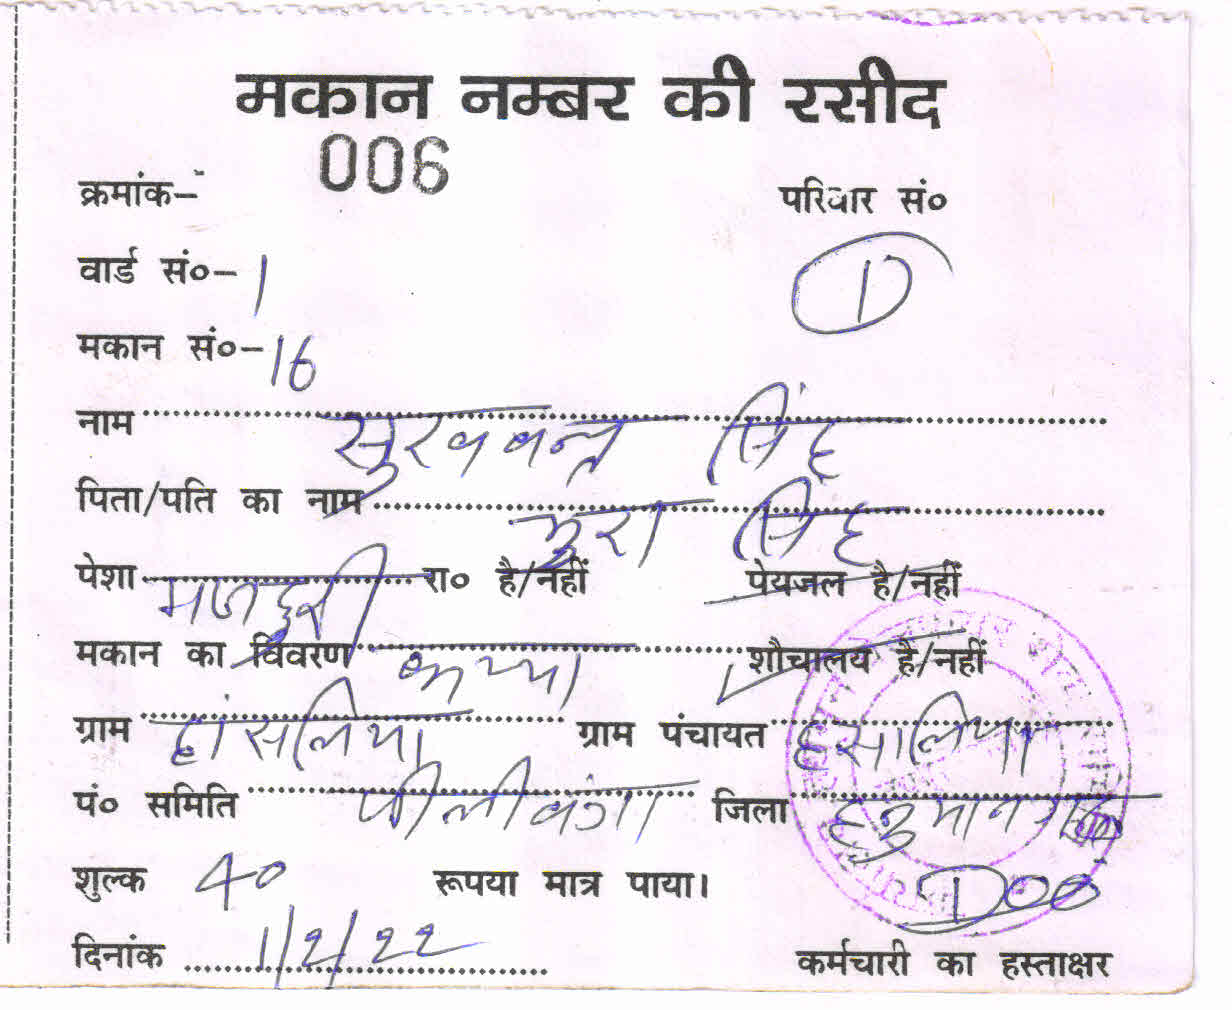 मकान नम्बर की रसीद
क्रमांक- 006 परिवार सं०
वार्ड सं०- 1 1
मकान सं०- 16
नाम सुखवन्त सिंह
पिता/पति का नाम सिंह
पेशा मजदूरी रा० है/नहीं पेयजल है/नहीं
मकान का विवरण कच्चा शौचालय है/नहीं
ग्राम हांसलिया ग्राम पंचायत हंसालिया
पं० समिति पीलीबंगा जिला हनुमानगढ़
शुल्क 40 रूपया मात्र पाया।
दिनांक 1/2/22 कर्मचारी का हस्ताक्षर